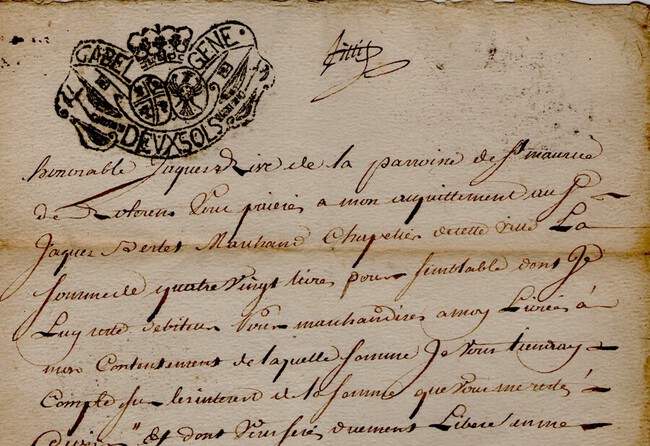 GABEL GENE
DEUX SOLS
honorable Jaques Rive de la parroisse de St maurice
de Rotorens Vous paieres a mon acquittement au Sr
Jaques Bertet Marchand Chapelier de cette ville La
somme de quatre Vingt livres pour semblable dont Je
Luy reste debiteur pour marchandises a moy Livrees à
mon Contentement de laquelle somme Je Vous tiendray
Compte sur les interest de la somme que Vous me restés
Et dont Vous serés duement Libere en me